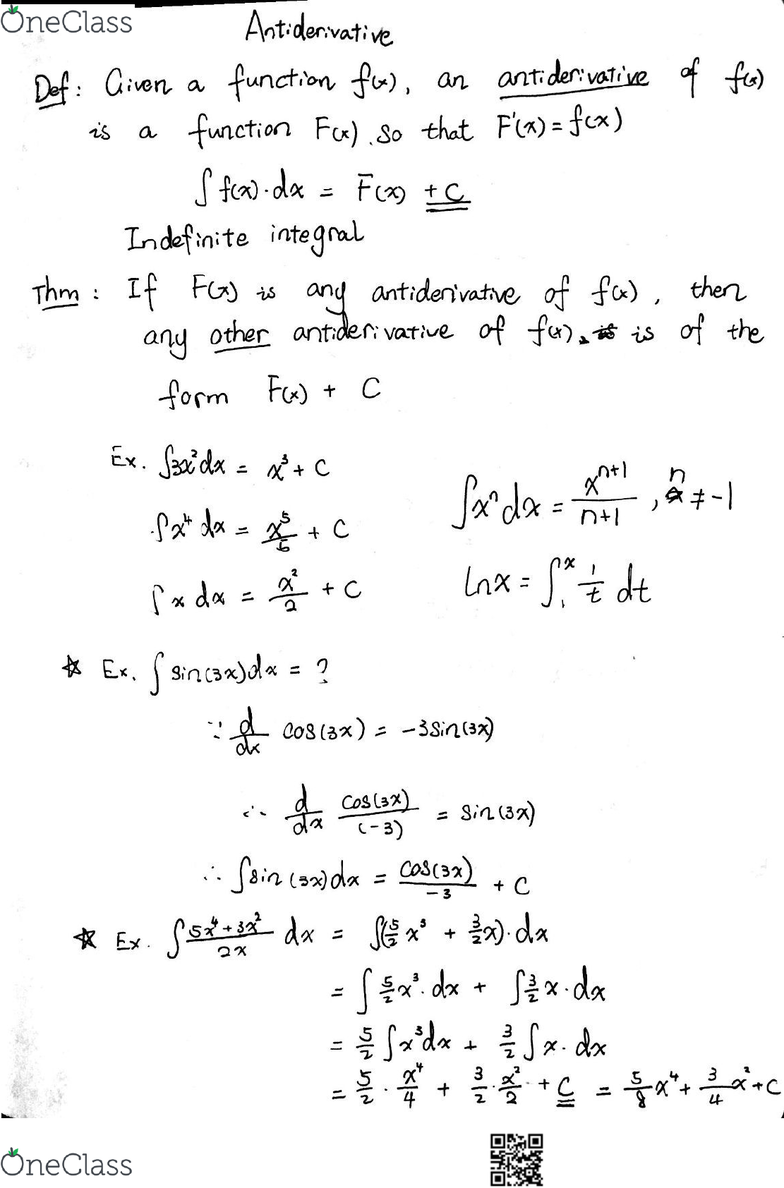 OneClass
Antiderivative
Def: Given a function f(x), an antiderivative of f(x)
is a function F(x) so that F'(x) = f(x)
∫ f(x)·dx = F(x) + C
Indefinite integral
Thm: If F(x) is any antiderivative of f(x), then
any other antiderivative of f(x) is of the
form F(x) + C
Ex. ∫3x²dx = x³ + C
∫x⁴ dx = x⁵/5 + C
∫ x dx = x²/2 + C
∫xⁿ dx = xⁿ⁺¹/n+1 , n ≠ -1
lnx = ∫₁ˣ 1/t dt
☆ Ex. ∫ sin(3x)dx = ?
∵ d/dx cos(3x) = -3sin(3x)
∴ d/dx cos(3x)/(-3) = sin(3x)
∴ ∫sin(3x)dx = cos(3x)/-3 + C
☆ Ex. ∫ 5x⁴+3x²/2x dx = ∫(5/2 x³ + 3/2 x)·dx
= ∫ 5/2 x³·dx + ∫ 3/2 x·dx
= 5/2 ∫x³dx + 3/2 ∫x·dx
= 5/2 · x⁴/4 + 3/2 · x²/2 + C = 5/8 x⁴ + 3/4 x² + C
OneClass